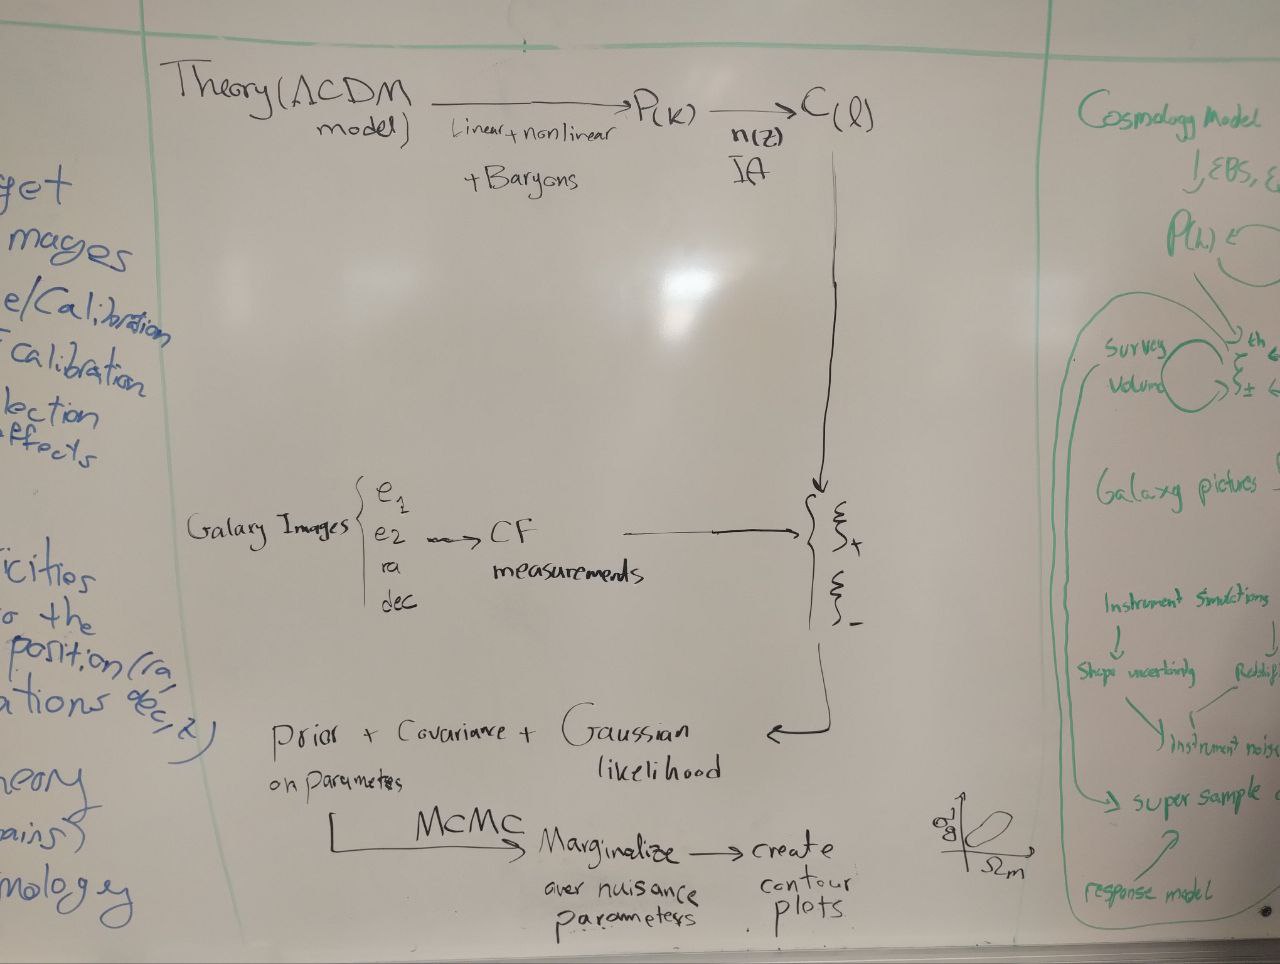 get
mages
e/Calibration
calibration
lection
effects
icities
to the
position (ra,
ations dec, z)
heory
ains)
mology
Theory (ΛCDM
model)
Linear + nonlinear
+ Baryons
P(k)
n(z)
IA
C(l)
Galaxy Images
e1
e2
ra
dec
CF
measurements
ξ+
ξ-
Prior + Covariance + Gaussian
likelihood
on parameters
MCMC
Marginalize
over nuisance
parameters
create
contour
plots
σ8
Ωm
Cosmology Model
P(k)
Survey
Volume
th
ξ±
Galaxy pictures
Instrument Simulations
Shape uncertainty
Redshif
Instrument noise
super sample c
response model